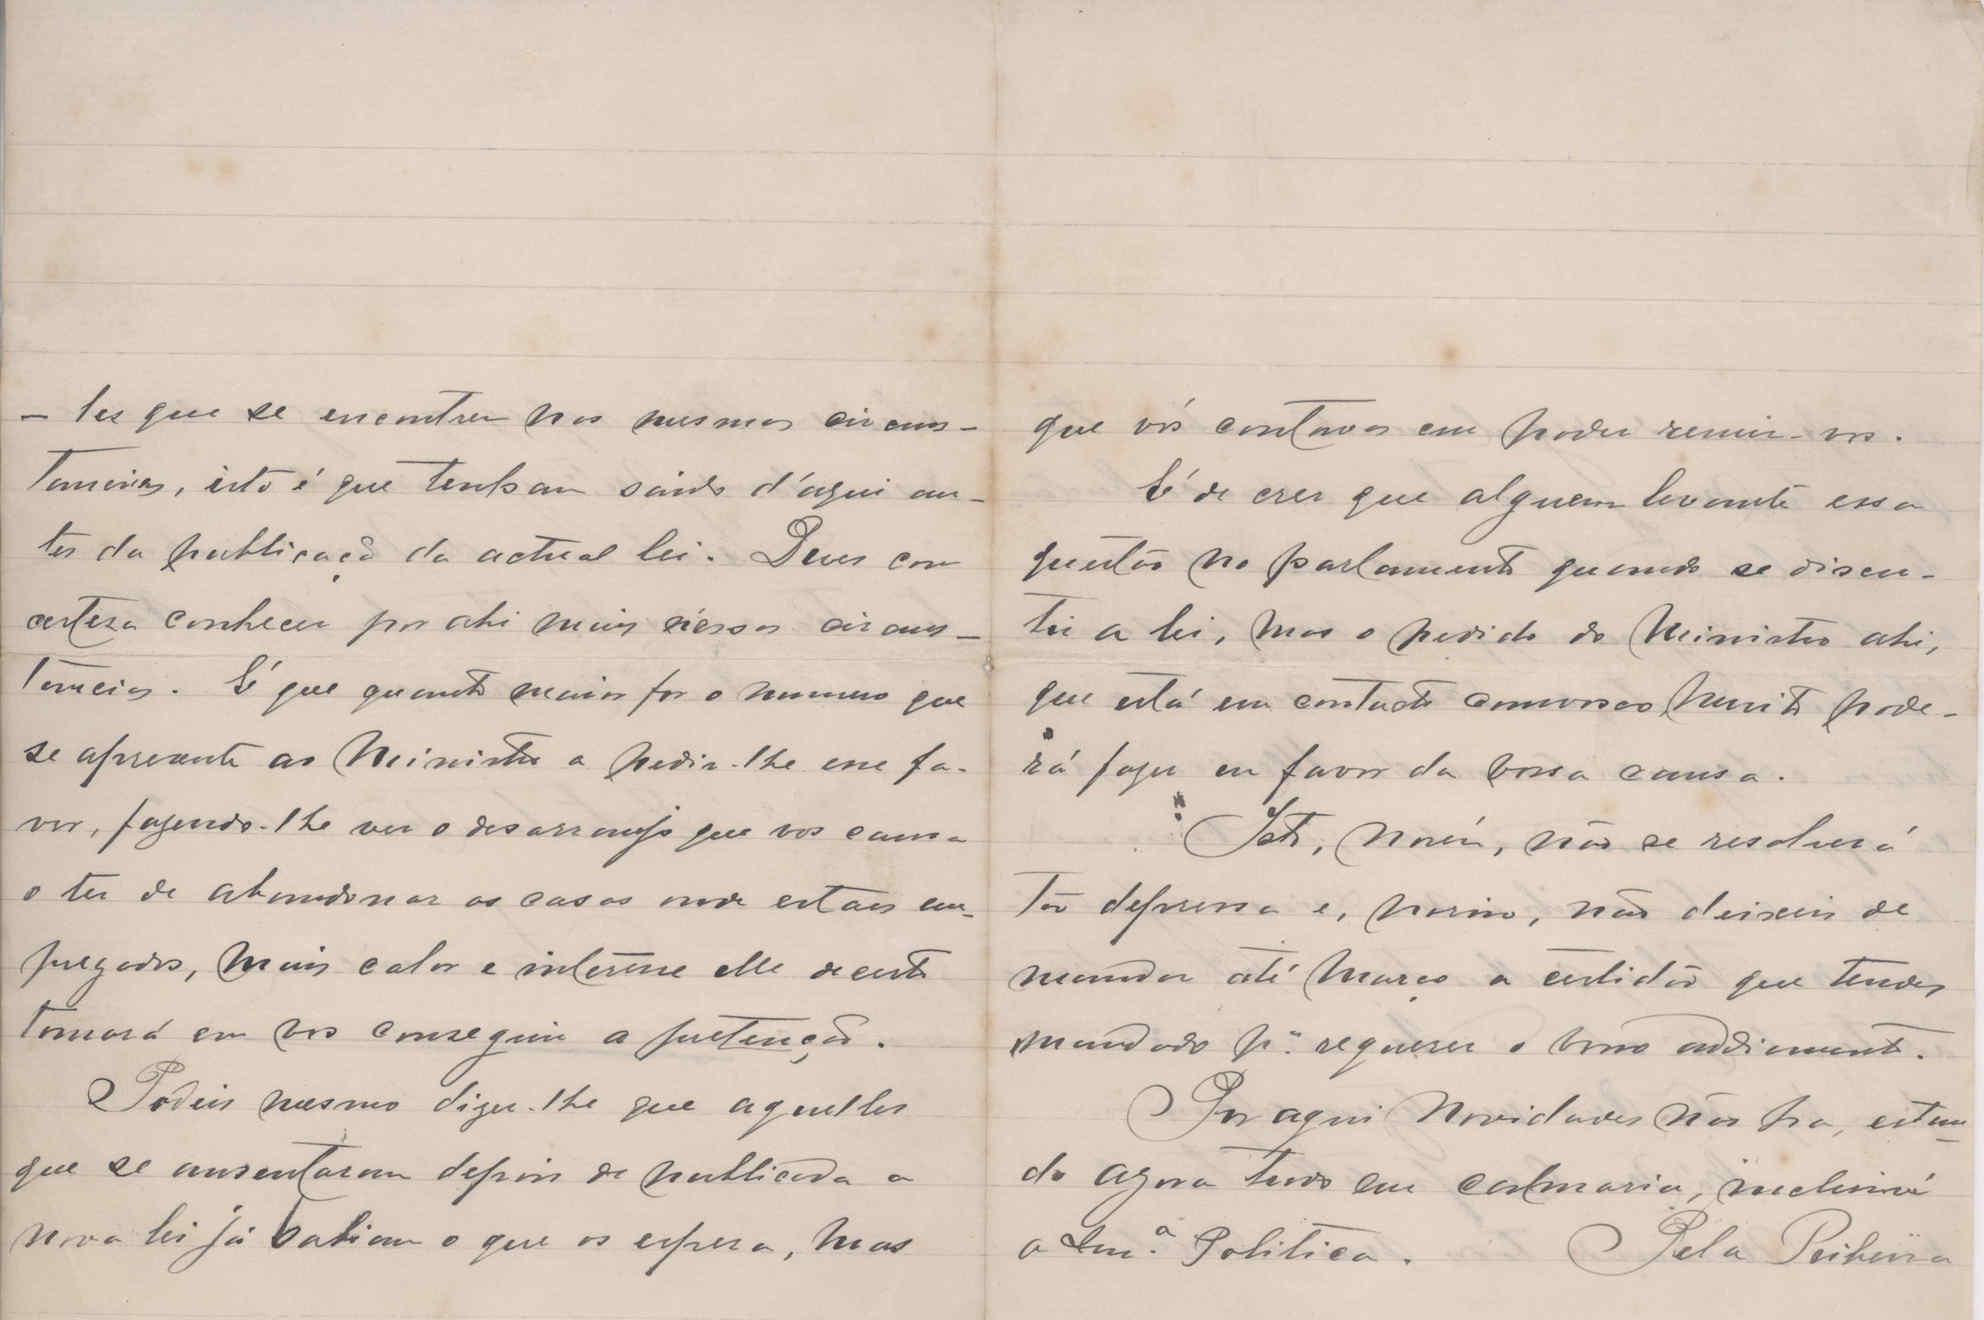 - les que se encontrem nas mesmas circums-
tancias, isto é que tenham saido d'aqui an-
tes da publicação da actual lei. Deves com
certeza conhecer por ahi mais n'essas circums-
tancias. É que quanto maior for o numero que
se apresente ao Ministro a pedir-lhe esse fa-
vor, fazendo-lhe ver o desarranjo que vos causa
o ter de abandonar as casas onde estaes em-
pregados, mais calor e interesse elle decerto
tomará em vos conseguir a pretenção.
Podeis mesmo dizer-lhe que aquelles
que se ausentaram depois de publicada a
nova lei já sabiam o que os espera, mas
que vós contavas em poder remir-vos.
É de crer que alguem levante essa
questão no parlamento quando se discu-
tir a lei, mas o pedido do Ministro ahi,
que está em contacto comvosco, muito pode-
rá fazer em favor da vossa causa.
Isto, porém, não se resolverá
tão depressa e, porisso, não deixeis de
mandar até Março a certidão que tendes
mandado pª requerer o vosso addiamento.
Por aqui novidades não ha, estan-
do agora tudo em calmaria, inclusivé
a Snr.ª Politica. Pela Peibeira